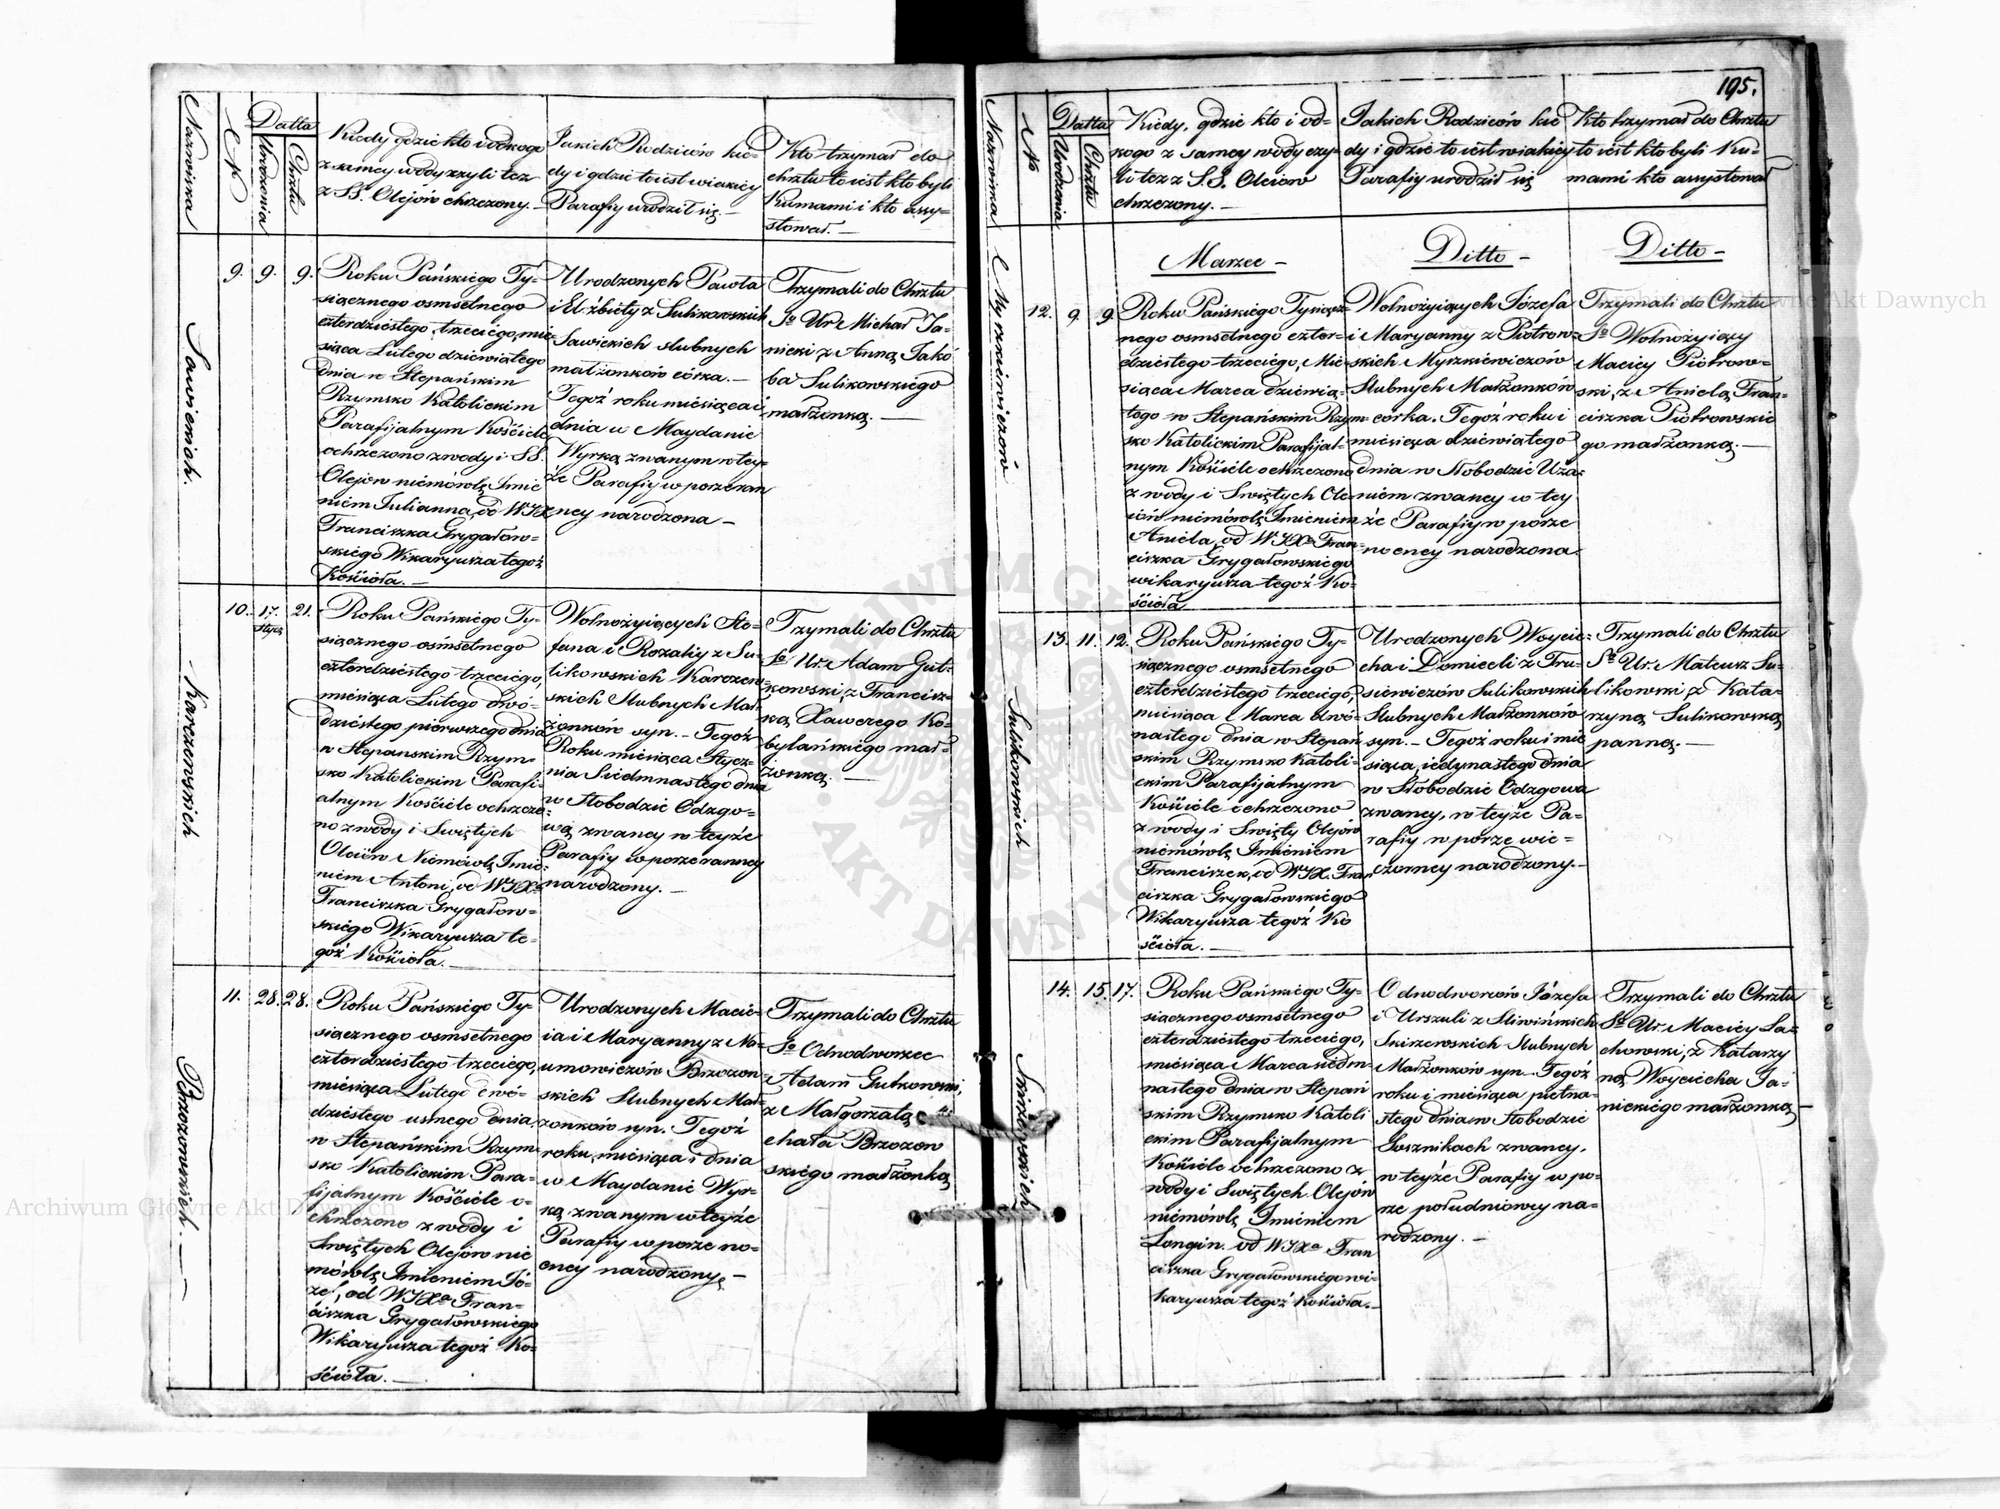 Nazwiska
№
Datta
Urodzenia
Chrztu
Kiedy gdzie kto i od kogo
z samey wody czyli też
z SS. Olejów chrzczony. —
Jakich Rodziców kie-
dy i gdzie to iest w iakiey
Parafiy urodził się. —
Kto trzymał do
chrztu to iest kto byli
Kumami i kto assy-
stował. —
Sawickich.
9. 9. 9.
Roku Pańskiego Ty-
siącznego osmsetnego
czterdziestego trzeciego, mie-
siąca Lutego dziewiątego
dnia w Stepańskim
Rzymsko Katolickim
Parafijalnym Kościele
ochrzczono z wody i SS.
Olejów niémówlę Imie
niem Julianna, od WJX
Franciszka Grygałow-
skiégo Wikaryusza tegoż
Kościoła. —
Urodzonych Pawła
i Elźbiéty z Sulikowskich
Sawickich slubnych
małżonków córka. —
Tegoż roku miesiąca i
dnia w Maydanie
Wyrką zwanym w tey-
że Parafiy w porze ran
ney narodzona —
Trzymali do Chrztu
So Ur. Michał Ja-
nicki z Anną Jakó-
ba Sulikowskiégo
małżonką. —
Karczewskich
10. 17. 21.
Stycz
Roku Pańskiégo Ty-
siącznego osmsetnego
czterdziestego trzeciego,
miesiąca Lutego dwó-
dziestego pierwszego dnia
w Stepanskim Rzym-
sko Katolickim Parafi-
alnym Kościele ochrzczo-
no z wody i Swiętych
Oleiów Niemówlę Imie-
niem Antoni, od WJXa
Franciszka Grygałow-
skiégo Wikaryusza te-
goż Kościoła. —
Wolnożyiących Ste-
fana i Rozaliy z Su-
likowskich Karczew-
skich Slubnych Mał-
żonków syn. — Tegoż
Roku miesiąca Stycz-
nia Siédmnastego dnia
w Słobodzie Odzgo-
wą zwaney w teyże
Parafiy w porze ranney
narodzony. —
Trzymali do Chrztu
So Ur. Adam Gut-
kowski, z Francisz-
ką Xawerego Ko-
bylańskiégo mał-
żonką. —
Brzozowskich. —
11. 28. 28.
Roku Pańskiégo Ty-
siącznego osmsetnego
czterdziestego trzeciego,
miesiąca Lutego dwó-
dziestego usmego dnia
w Stepańskim Rzym-
sko Katolickim Para-
fijalnym Kościele o-
chrzczono z wody i
Swiętych Olejów nie
mówlę Imieniem Jó-
zef, od WJXa Fran-
ciszka Grygałowskiego
Wikaryusza tegoż Ko-
ścioła. —
Urodzonych Macie-
ia i Maryanny z Na-
umowiczów Brzozow-
skich Slubnych Mał-
żonków syn. Tegoż
roku, miesiąca i dnia
w Maydanie Wyr-
ką zwanym w teyże
Parafiy w porze no-
cney narodzony. —
Trzymali do Chrztu
So Odnodworzec
Adam Gutkowski,
z Małgorzatą Mi-
chała Brzozow
skiego małżonką
195.
Nazwiska
№
Datta
Urodzenia
Chrztu
Kiedy, gdzie kto i od-
kogo z samey wody czy-
li tez z S.S. Oleiów
chrzczony. —
Jakich Rodziców kie
dy i gdzie to iest w iakiey
Parafiy urodził się
Kto trzymał do Chrztu
to iest kto byli Ku-
mami kto assystował
Marzec —
Ditto —
Ditto —
Myszkiéwiczów
12. 9. 9.
Roku Pańskiégo Tysiącz-
nego osmsetnego czter-
dziestego trzeciego, Mie-
siąca Marca dziewią-
tego w Stepańskim Rzym
sko Katolickim Parafijal-
nym Kościéle ochrzczono
z wody i Swiętych Ole-
iów niémówlę Imieniem
Aniela, od WJXa Fran-
ciszka Grygałowskiego
wikaryusza tegoż Ko-
ścioła
Wolnożyiących Józefa
i Maryanny z Piotrow-
skich Myszkiewiczów
Slubnych Małżonków
córka. Tegoż roku i
miesiąca dziéwiatego
dnia w Słobodzie Uża-
niem zwaney w tey
że Parafiy w porze
nocney narodzona
Trzymali do Chrztu
So Wolnożyiący
Maciey Piotrow-
ski, z Anielą Fran-
ciszka Piotrowskie
go małżonką. —
Sulikowskich
13. 11. 12.
Roku Pańskiégo Ty-
siącznego osmsetnego
czterdziestego trzeciégo,
miesiąca Marca dwó-
nastego dnia w Stepań
skim Rzymsko Katoli-
ckim Parafijalnym
Kościéle ochrzczono
z wody i Swięty Olejów
niemówlę Imieniem
Franciszek, od WJX. Fran
ciszka Grygałowskiégo
Wikaryusza tegoż Ko
ścioła. —
Urodzonych Woycie-
cha i Domiceli z Tru-
siewiczów Sulikowskich
Slubnych Małżonków
syn. — Tegoż roku i mie
siąca, iedynastego dnia
w Słobodzie Odzgowa
zwaney, w teyże Pa-
rafiy w porze wie-
czorney narodzony. —
Trzymali do Chrztu
So Ur. Mateusz Su-
likowski z Kata-
rzyną Sulikowską
panną. —
Skirżewskich
14. 15. 17.
Roku Pańskiégo Ty-
siącznego osmsetnego
czterdziestego trzeciego,
miesiąca Marca siédm-
nastego dnia w Stepań
skim Rzymsko Katoli
ckim Parafijalnym
Kościele ochrzczono z
wody i Swiętych Olejów
niémówlę Imieniem
Longin. od WJXa Fran
ciszka Grygałowskiégo wi-
karyusza tegoż Kościoła. —
Odnodworców Józefa
i Urszuli z Sliwińskich
Skirzewskich Slubnych
Małżonków syn. Tegoż
roku i miesiąca piętna-
stego dnia w Słobodzie
Sosznikach zwaney,
w teyże Parafiy w po-
rze południowey na-
rodzony. —
Trzymali do Chrztu
So Ur. Maciey La-
chowski, z Katarzy
ną Woyciecha Ja-
nickiégo małżonką —
Archiwum Główne Akt Dawnych
Archiwum Główne Akt Dawnych